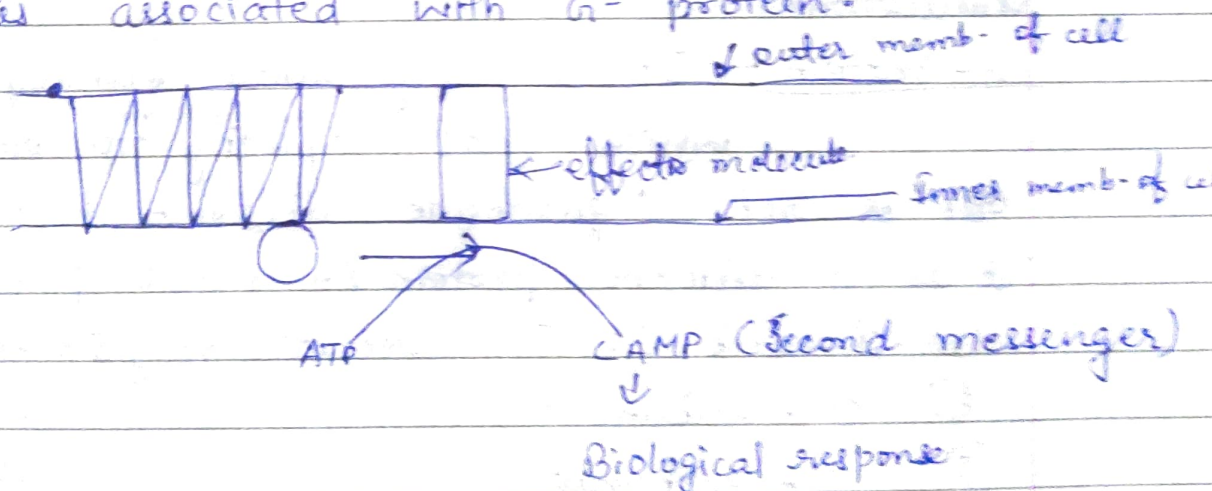 is associated with G- protein.
outer memb- of cell
effecto molecule
Inner memb- of ce
ATP
CAMP (Second messenger)
Biological response